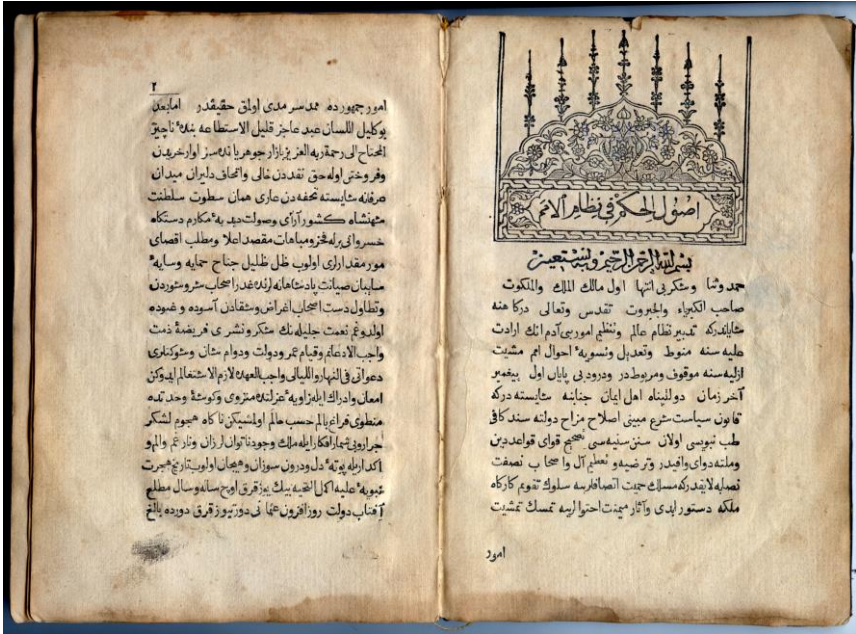 اصول الحكم في نظام الامم
بسم الله الرحمن الرحيم وبه نستعين
حمد وثنا وشكر بى انتها اول مالك الملك والملكوت
صاحب الكبرياء والجبروت تقدس وتعالى درگاهنه
شاياندركه تدبير نظام عالم وتنظيم امور بنى آدم انك ارادت
عليه سنه منوط وتعديل وتسويۀ احوال امم مشيت
ازليه سنه موقوف ومربوطدر ودرود بى پايان اول پيغمبر
آخر زمان دولتپناه اهل ايمان جنابنه شايسته دركه
قانون سياست شرع مبينى اصلاح مزاج دولته سند كافى
طب نبويسى اولان سنن سنيه سى تصحيح قواى قواعد دين
وملته دواى وافيدر وترضيه وتعظيم آل واصحاب نصفت
نصابه لايقدركه مسلك حميت اتصافلرينه سلوك تقويم كارگاه
ملكه دستور ابدى وآثار ميمنت احتوالرينه تمسك تمشيت
امور
٢
امور جمهورده ممد سرمدى اولمق حقيقدر امابعد
بو كليل اللسان عبد عاجز قليل الاستطاعه بندۀ ناچيز
المحتاح الى رحمة ربه العزيز بازار جوهرياندن سزاوار خريدن
وفروختى اوله جق نقددن خالى واتحاف دليران ميدان
عرفانه شايسته تحفه دن عارى همان سطوت سلطنت
شهنشاه كشور آراى وصولت دبدبۀ مكارم دستكاه
خسروانى برله فخر ومباهات مقصد اعلا ومطلب اقصاى
مور مقدارلرى اولوب ظل ظليل جناح حمايه وسايۀ
سايبان صيانت پادشاهانه لرنده غدر اصحاب شر وشوردن
وتطاول دست اصحاب اغراض وشقادن آسوده وغنوده
اولدوغم نعمت جليله نك شكر ونشرى فريضۀ ذمت
واجب الادعام وقيام عمر ودولت ودوام شان وشوكتلرى
دعواتى فى النهار والليالى واجب العهدۀ لازم الاشتغالم ايدوكن
امعان وادراك ايله زاويۀ عزلتده منزوى وكوشۀ وحدتده
منطوى فراغ بالم حسب حالم اولمشيكن ناكاه هجوم لشكر
جرار وبى شمار افكار ايله ملك وجود ناتوان لرزان ونار غم والم و
اكدار ايله پوتۀ دل ودرون سوزان وهيجان اولوب تاريخ هجرت
نبويۀ عليه اكمل التحيه بيك يوز قرق اوج سنه وسال مطلع
آفتاب دولت روز افزون عثمانى دورتيوز قرق دورده بالغ